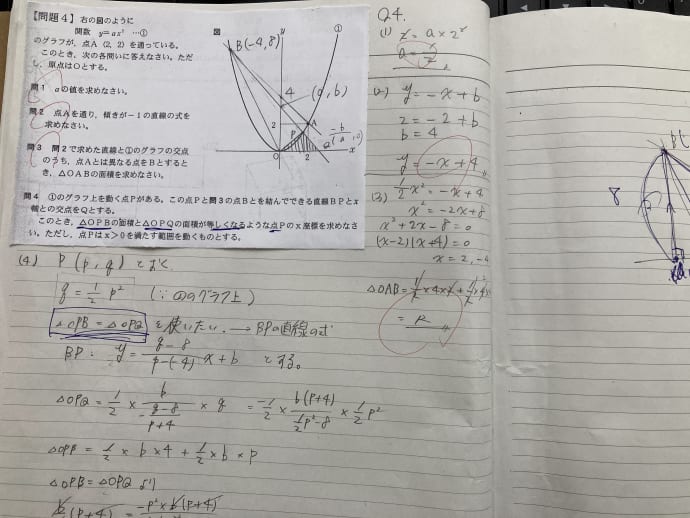 【問題4】 右の図のように
関数 y=ax² …①
のグラフが、点A（2, 2）を通っている。
このとき、次の各問いに答えなさい。ただ
し、原点はOとする。
問1 aの値を求めなさい。
問2 点Aを通り、傾きが−1の直線の式を
求めなさい。
問3 問2で求めた直線と①のグラフの交点
のうち、点Aとは異なる点をBとすると
き、△OABの面積を求めなさい。
問4 ①のグラフ上を動く点Pがある。この点Pと問3の点Bとを結んでできる直線BPとx
軸との交点をQとする。
このとき、△OPBの面積と△OPQの面積が等しくなるような点Pのx座標を求めなさ
い。ただし、点Pはx>0を満たす範囲を動くものとする。
図
y
①
B(-4,8)
4
(a, b)
2
A
P
O
2
x
Q4.
(1) 2 = a × 2²
a = 1/2
(2) y = -x + b
2 = -2 + b
b = 4
y = -x + 4
(3) 1/2 x² = -x + 4
x² = -2x + 8
x² + 2x - 8 = 0
(x-2)(x+4) = 0
x = 2, -4
△OAB =
= 12
(4) P (p, q) とおく
q = 1/2 p² (∵ ①のグラフ上)
△OPB = △OPQ を使いたい. → BPの直線の式
BP : y = (q-8)/(p-(-4)) x + b とする。
△OPQ = 1/2 × b/(-(q-8)/(p+4)) × q = -1/2 × b(p+4)/(1/2 p²-8) × 1/2 p²
△OPB = 1/2 × b × 4 + 1/2 × b × p
△OPB = △OPQ より
8
B